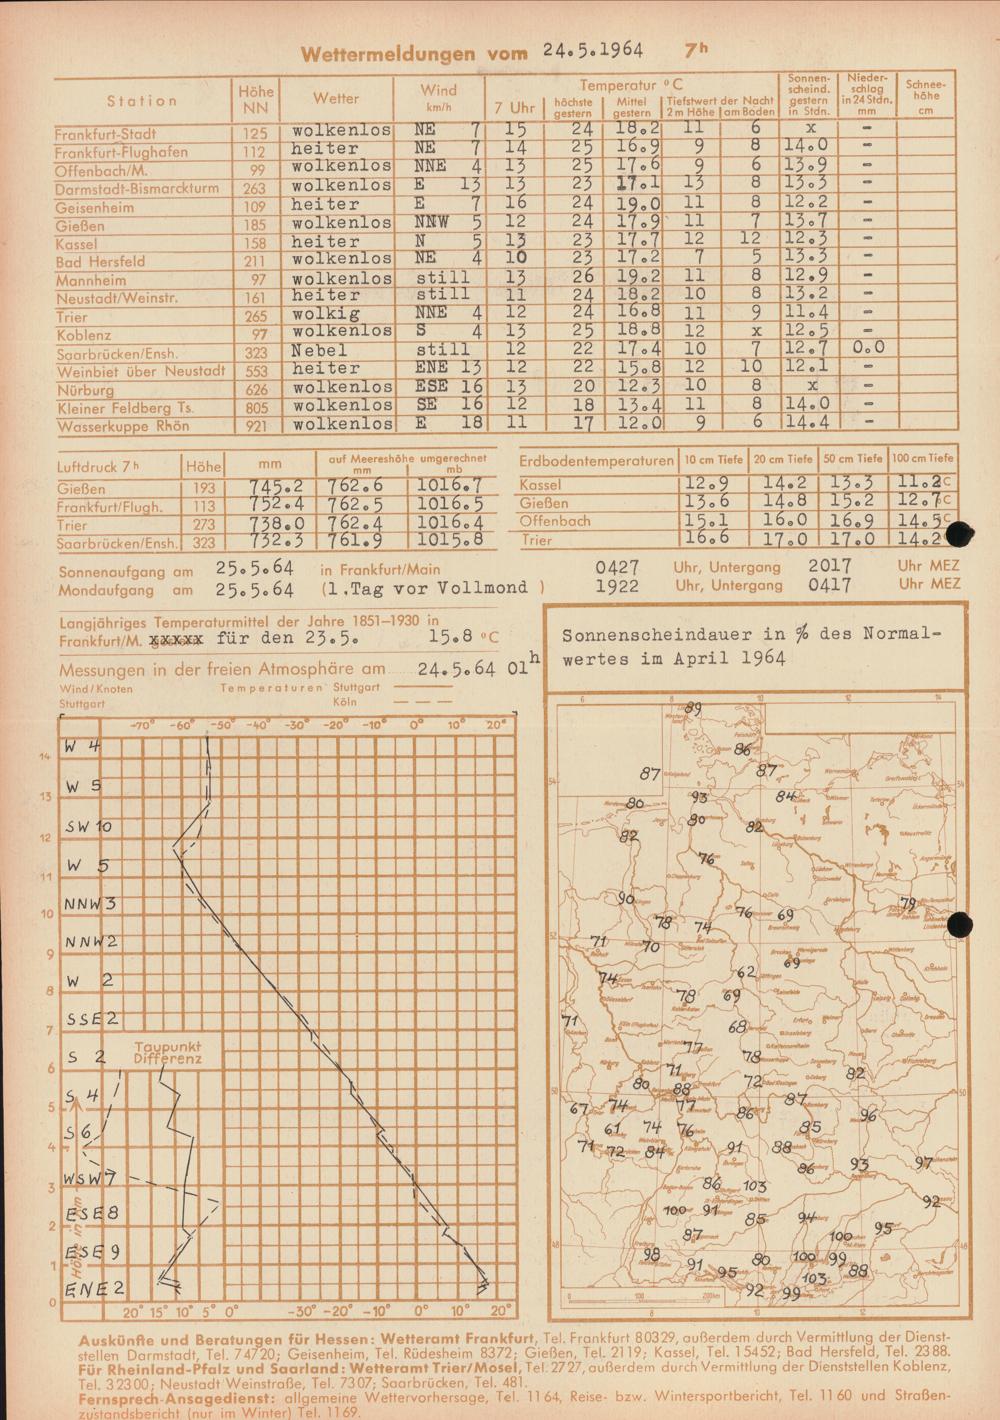 Wettermeldungen vom 24.5.1964 7h
Station Höhe NN Wetter Wind km/h Temperatur °C Sonnen-scheind. gestern in Stdn. Nieder-schlag in 24 Stdn. mm Schnee-höhe cm
7 Uhr höchste gestern Mittel gestern Tiefstwert der Nacht 2 m Höhe am Boden
Frankfurt-Stadt 125 wolkenlos NE 7 15 24 18.2 11 6 x -
Frankfurt-Flughafen 112 heiter NE 7 14 25 16.9 9 8 14.0 -
Offenbach/M. 99 wolkenlos NNE 4 13 25 17.6 9 6 13.9 -
Darmstadt-Bismarckturm 263 wolkenlos E 13 13 23 17.1 13 8 13.3 -
Geisenheim 109 heiter E 7 16 24 19.0 11 8 12.2 -
Gießen 185 wolkenlos NNW 5 12 24 17.9 11 7 13.7 -
Kassel 158 heiter N 5 13 23 17.7 12 12 12.3 -
Bad Hersfeld 211 wolkenlos NE 4 10 23 17.2 7 5 13.3 -
Mannheim 97 wolkenlos still 13 26 19.2 11 8 12.9 -
Neustadt/Weinstr. 161 heiter still 11 24 18.2 10 8 13.2 -
Trier 265 wolkig NNE 4 12 24 16.8 11 9 11.4 -
Koblenz 97 wolkenlos S 4 13 25 18.8 12 x 12.5 -
Saarbrücken/Ensh. 323 Nebel still 12 22 17.4 10 7 12.7 0.0
Weinbiet über Neustadt 553 heiter ENE 13 12 22 15.8 12 10 12.1 -
Nürburg 626 wolkenlos ESE 16 13 20 12.3 10 8 x -
Kleiner Feldberg Ts. 805 wolkenlos SE 16 12 18 13.4 11 8 14.0 -
Wasserkuppe Rhön 921 wolkenlos E 18 11 17 12.0 9 6 14.4 -
Luftdruck 7h Höhe mm auf Meereshöhe umgerechnet mm mb
Gießen 193 745.2 762.6 1016.7
Frankfurt/Flugh. 113 752.4 762.5 1016.5
Trier 273 738.0 762.4 1016.4
Saarbrücken/Ensh. 323 732.3 761.9 1015.8
Erdbodentemperaturen 10 cm Tiefe 20 cm Tiefe 50 cm Tiefe 100 cm Tiefe
Kassel 12.9 14.2 13.3 11.2°C
Gießen 13.6 14.8 15.2 12.7°C
Offenbach 15.1 16.0 16.9 14.5°C
Trier 16.6 17.0 17.0 14.2°
Sonnenaufgang am 25.5.64 in Frankfurt/Main 0427 Uhr, Untergang 2017 Uhr MEZ
Mondaufgang am 25.5.64 (1.Tag vor Vollmond ) 1922 Uhr, Untergang 0417 Uhr MEZ
Langjähriges Temperaturmittel der Jahre 1851–1930 in
Frankfurt/M. xxxxx für den 23.5. 15.8 °C
Messungen in der freien Atmosphäre am 24.5.64 01h
Wind/Knoten Temperaturen Stuttgart
Stuttgart Köln
-70° -60° -50° -40° -30° -20° -10° 0° 10° 20°
W 4
14
W 5
13
SW 10
12
W 5
11
NNW 3
10
NNW 2
9
W 2
8
SSE 2
7
S 2
Taupunkt
Differenz
6
S 4
5
S 6
4
WSW 7
3
ESE 8
2
ESE 9
1
ENE 2
0
Höhe in km
20° 15° 10° 5° 0° -30° -20° -10° 0° 10° 20°
Sonnenscheindauer in % des Normal-
wertes im April 1964
6 8 10 12 14
89
86
87 87
54 54
80 93 84
80
82 82
76
90 76 69 79
78 74
52 71 70
69
74 62
78 69
71 68
77 78
71 72 82
80 88
50 50
67 74 77 86 87 96
61 74 76 85
71 72 84 91 88 86 93 97
86 103 92
100 91 85 94 95
87 100
48 98 91 80 100 99 48
95 103 88
92 99
0 100 200km
8 10 12
Auskünfte und Beratungen für Hessen: Wetteramt Frankfurt, Tel. Frankfurt 80329, außerdem durch Vermittlung der Dienst-
stellen Darmstadt, Tel. 74720; Geisenheim, Tel. Rüdesheim 8372; Gießen, Tel. 2119; Kassel, Tel. 15452; Bad Hersfeld, Tel. 2388.
Für Rheinland-Pfalz und Saarland: Wetteramt Trier/Mosel, Tel. 2727, außerdem durch Vermittlung der Dienststellen Koblenz,
Tel. 32300; Neustadt Weinstraße, Tel. 7307; Saarbrücken, Tel. 481.
Fernsprech-Ansagedienst: allgemeine Wettervorhersage, Tel. 1164, Reise- bzw. Wintersportbericht, Tel. 1160 und Straßen-
zustandsbericht (nur im Winter) Tel. 1169.